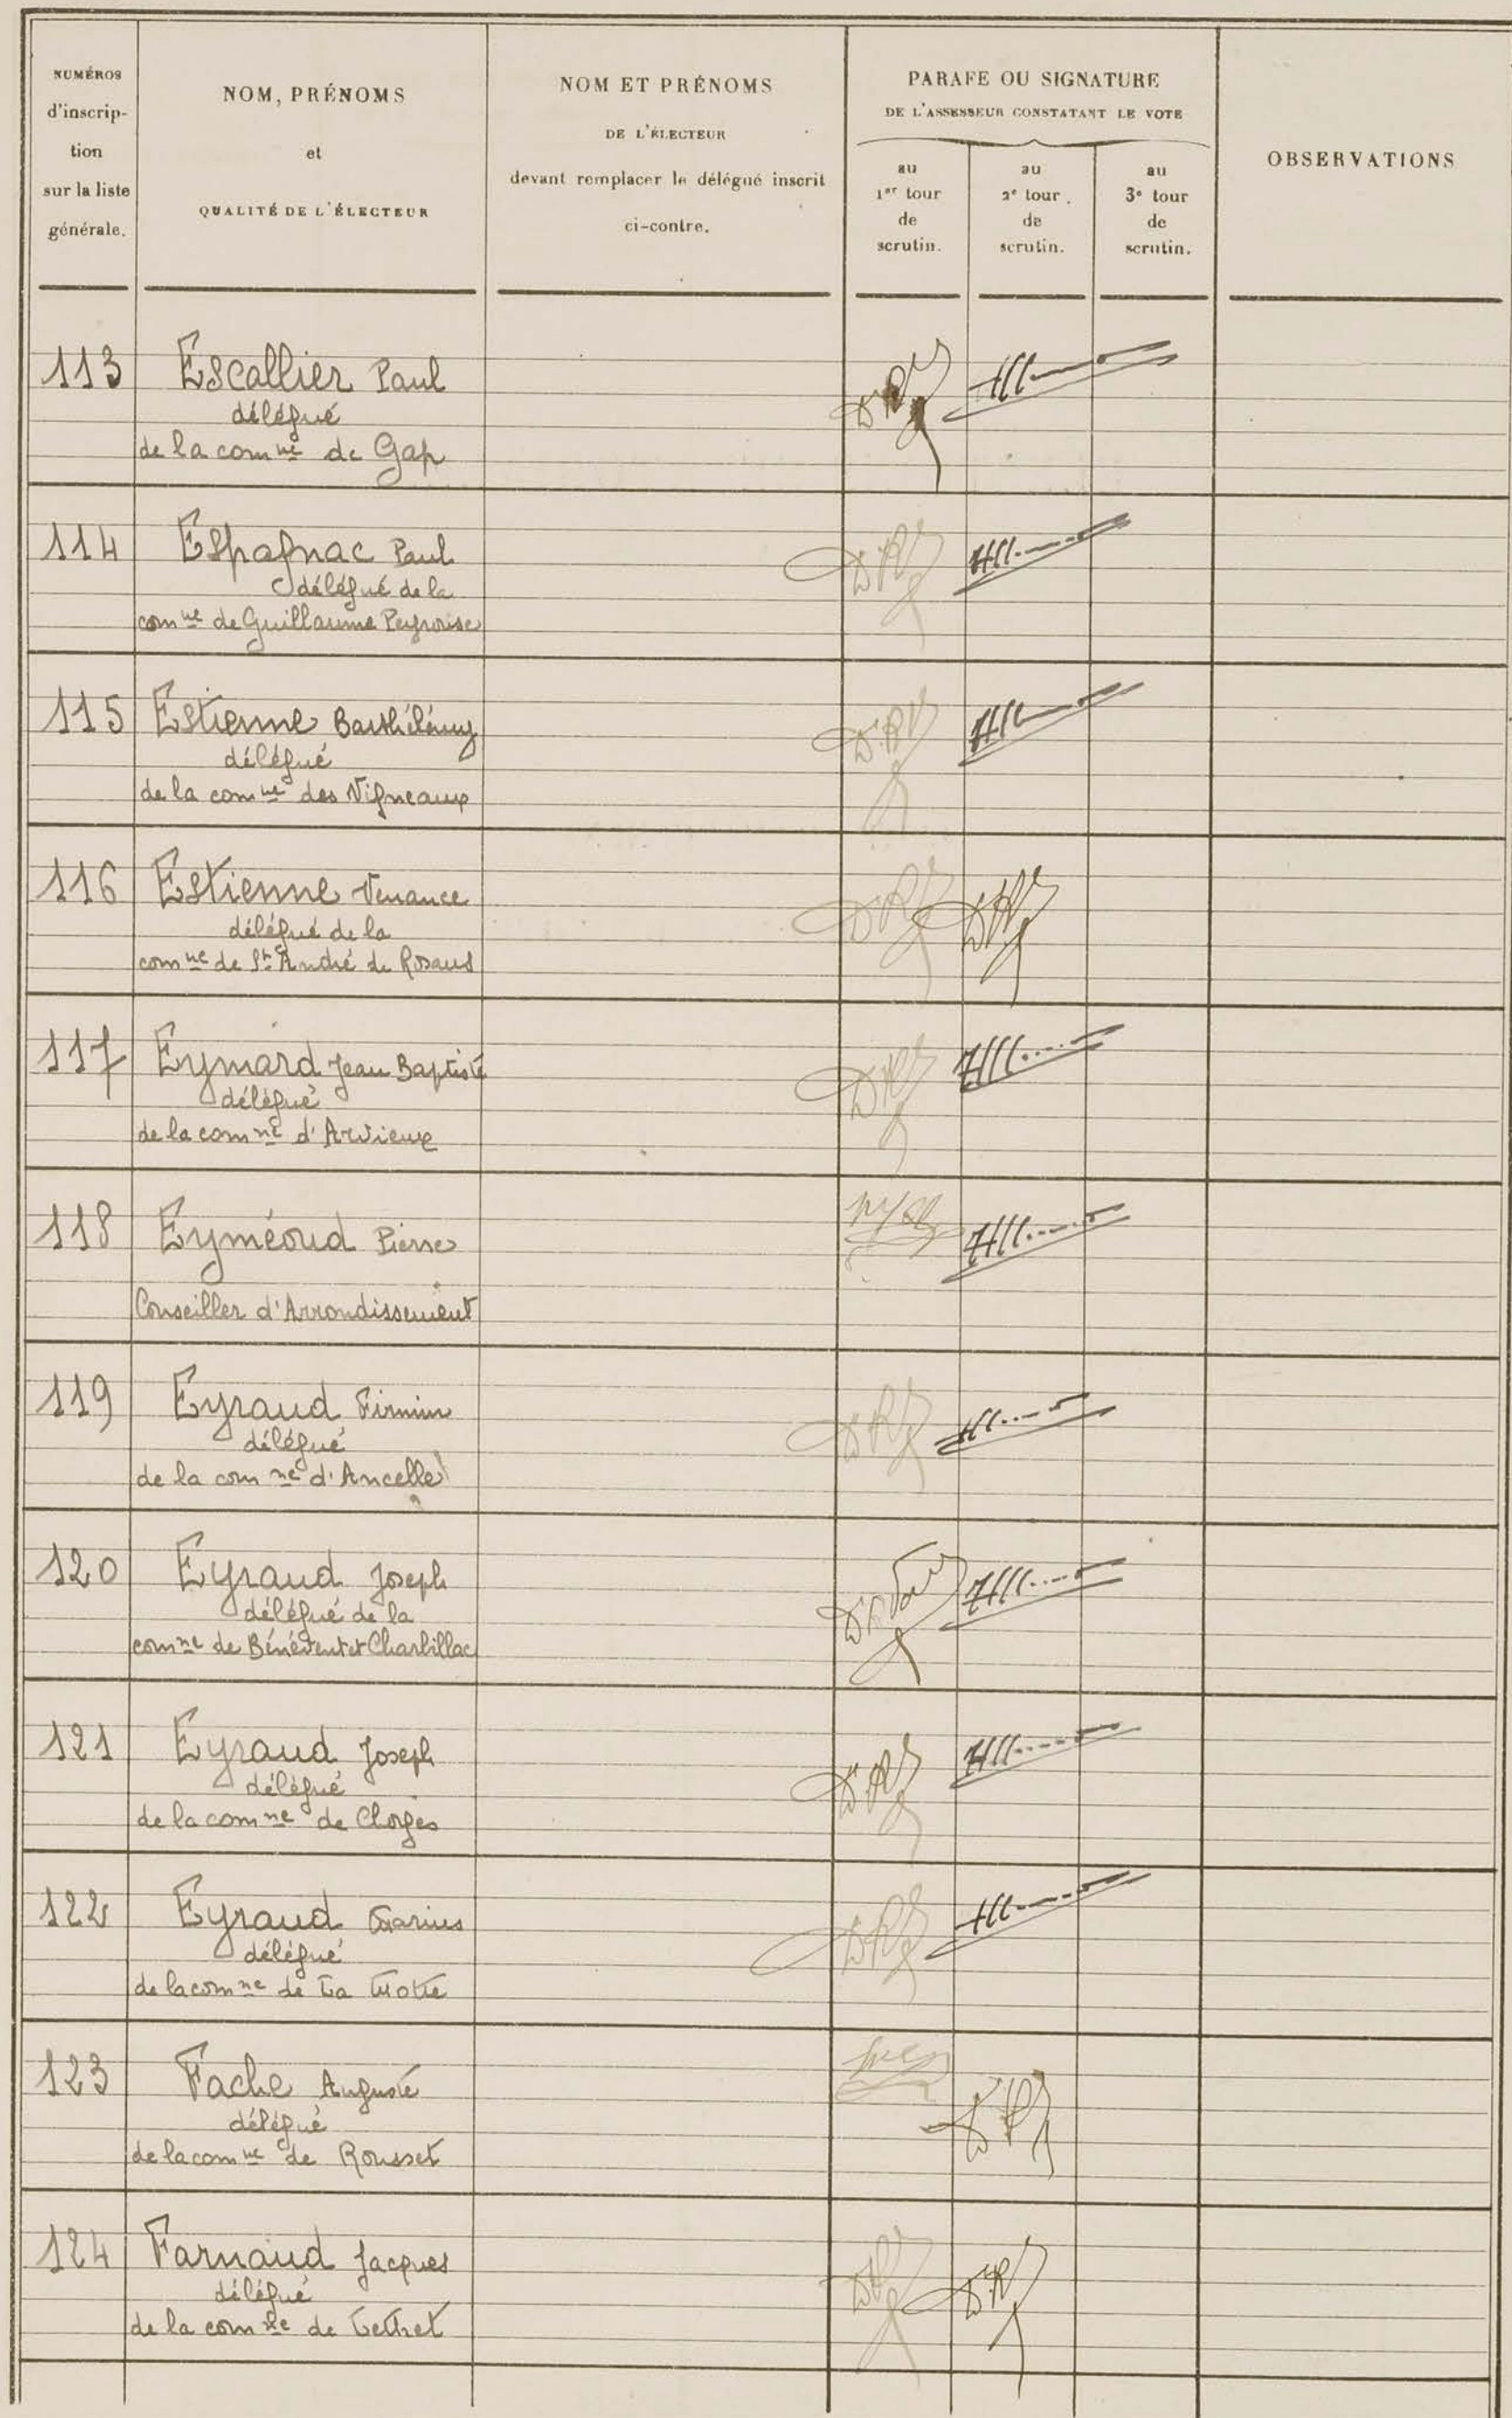 NUMÉROS
d'inscrip-
tion
sur la liste
générale.
NOM, PRÉNOMS
et
QUALITÉ DE L'ÉLECTEUR
NOM ET PRÉNOMS
DE L'ÉLECTEUR
devant remplacer le délégué inscrit
ci-contre.
PARAFE OU SIGNATURE
DE L'ASSESSEUR CONSTATANT LE VOTE
au
1er tour
de
scrutin.
au
2e tour.
de
scrutin.
au
3e tour
de
scrutin.
OBSERVATIONS
113 Escallier Paul
délégué
de la comne de Gap
114 Espagnac Paul
délégué de la
comne de Guillaume Peyrouse
115 Estienne Barthélémy
délégué
de la comne des Vigneaux
116 Estienne Venance
délégué de la
comne de St André de Rosans
117 Eymard Jean Baptiste
délégué
de la comne d'Arvieux
118 Eyméoud Pierre
Conseiller d'Arrondissement
119 Eyraud Firmin
délégué
de la comne d'Ancelle
120 Eyraud Joseph
délégué de la
comne de Bénévent et Charbillac
121 Eyraud Joseph
délégué
de la comne de Chorges
122 Eyraud Marius
délégué
de la comne de La Motte
123 Fache Auguste
délégué
de la comne de Rousset
124 Farnaud Jacques
délégué
de la comne de Lettret